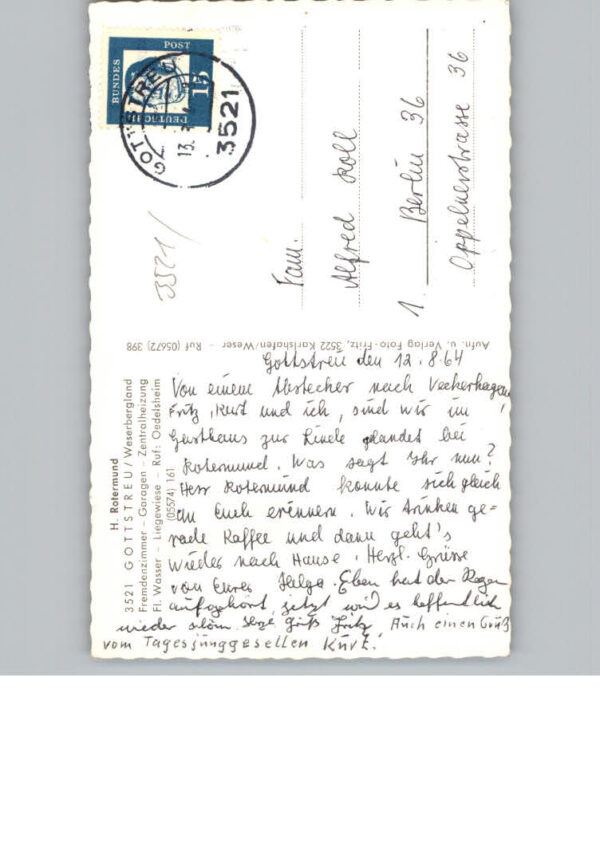 DEUTSCHE
BUNDES
POST
15
GOTTSTREU
13.
3521
3521/
Fam.
Alfred Koll
1. Berlin 36
Oppelnerstrasse 36
Aufn. u. Verlag Foto-Fritz, 3522 Karlshafen/Weser - Ruf (05672) 398
H. Rotermund
3521 GOTTSTREU/Weserbergland
Fremdenzimmer - Garagen - Zentralheizung
Fl. Wasser - Liegewiese - Ruf: Oedelsheim
(05574) 161
Gottstreu den 12.8.64
Von einem Abstecher nach Veckerhagen,
Fritz, Kurt und ich, sind wir im
Gasthaus zur Linde gelandet bei
Rotermund. Was sagt Ihr nun?
Herr Rotermund konnte sich gleich
an Euch erinnern. Wir trinken ge=
rade Kaffee und dann geht's
wieder nach Hause. Herzl. Grüsse
von Eurer Helga. Eben hat der Regen
aufgehört, jetzt wird es hoffentlich
wieder schön. Gruß Fritz. Auch einen Gruß
vom Tagesjunggesellen Kurt!